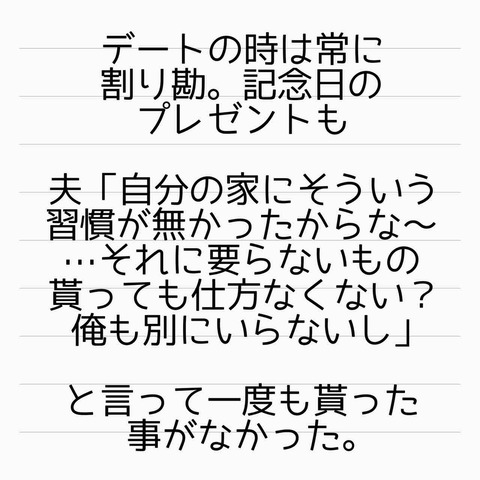 デートの時は常に
割り勘。記念日の
プレゼントも
夫「自分の家にそういう
習慣が無かったからな〜
…それに要らないもの
貰っても仕方なくない？
俺も別にいらないし」
と言って一度も貰った
事がなかった。